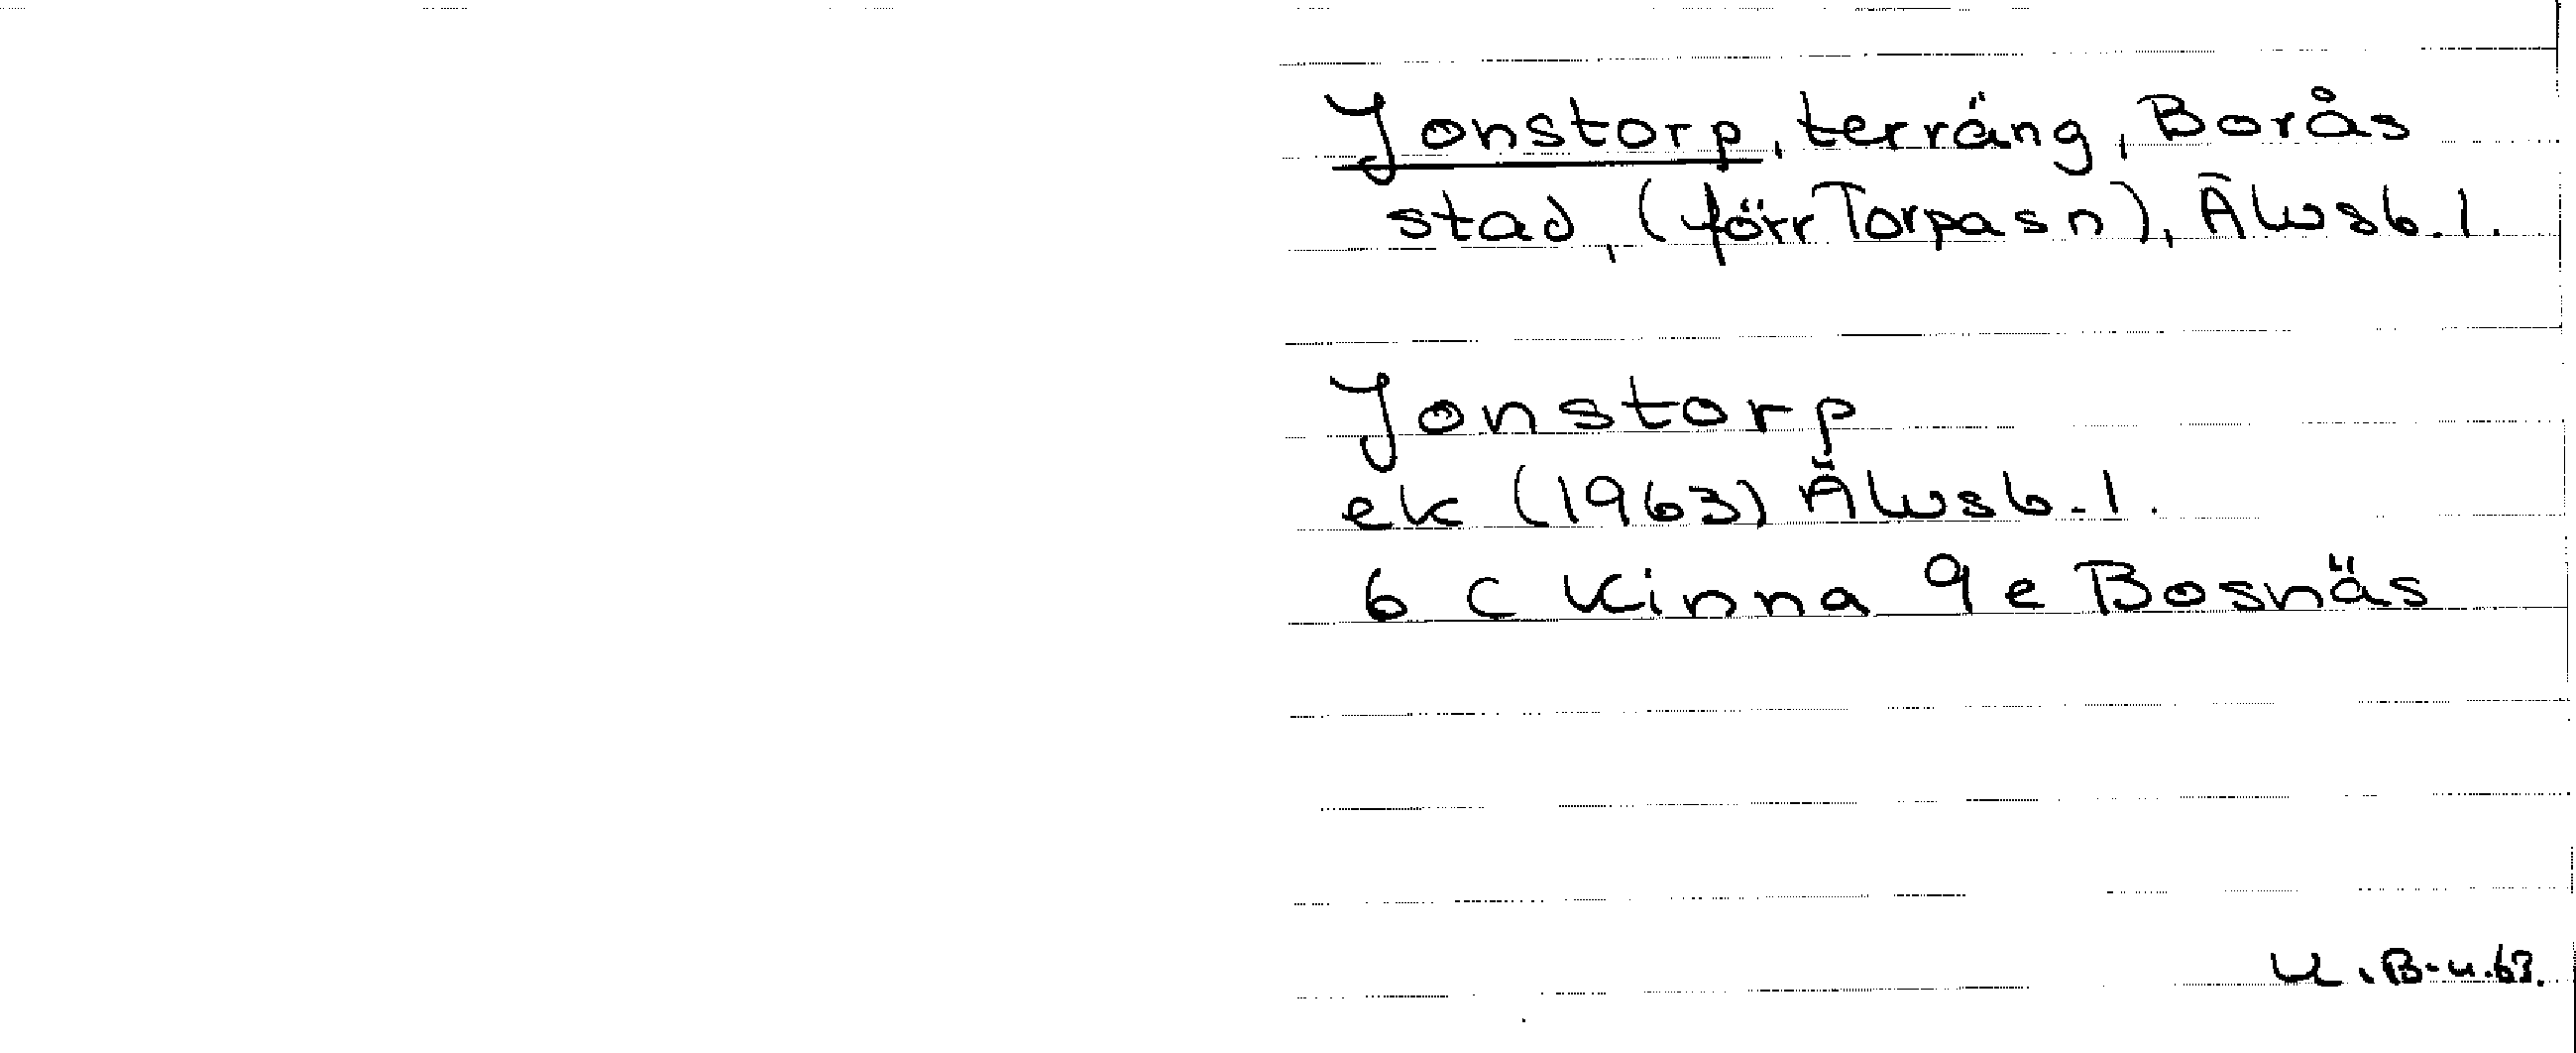 Jonstorp, terräng, Borås
stad, (förr Torpa sn), Älvsb. l.
Jonstorp
ek (1963) Älvsb. l.
6 C Kinna 9 e Bosnäs